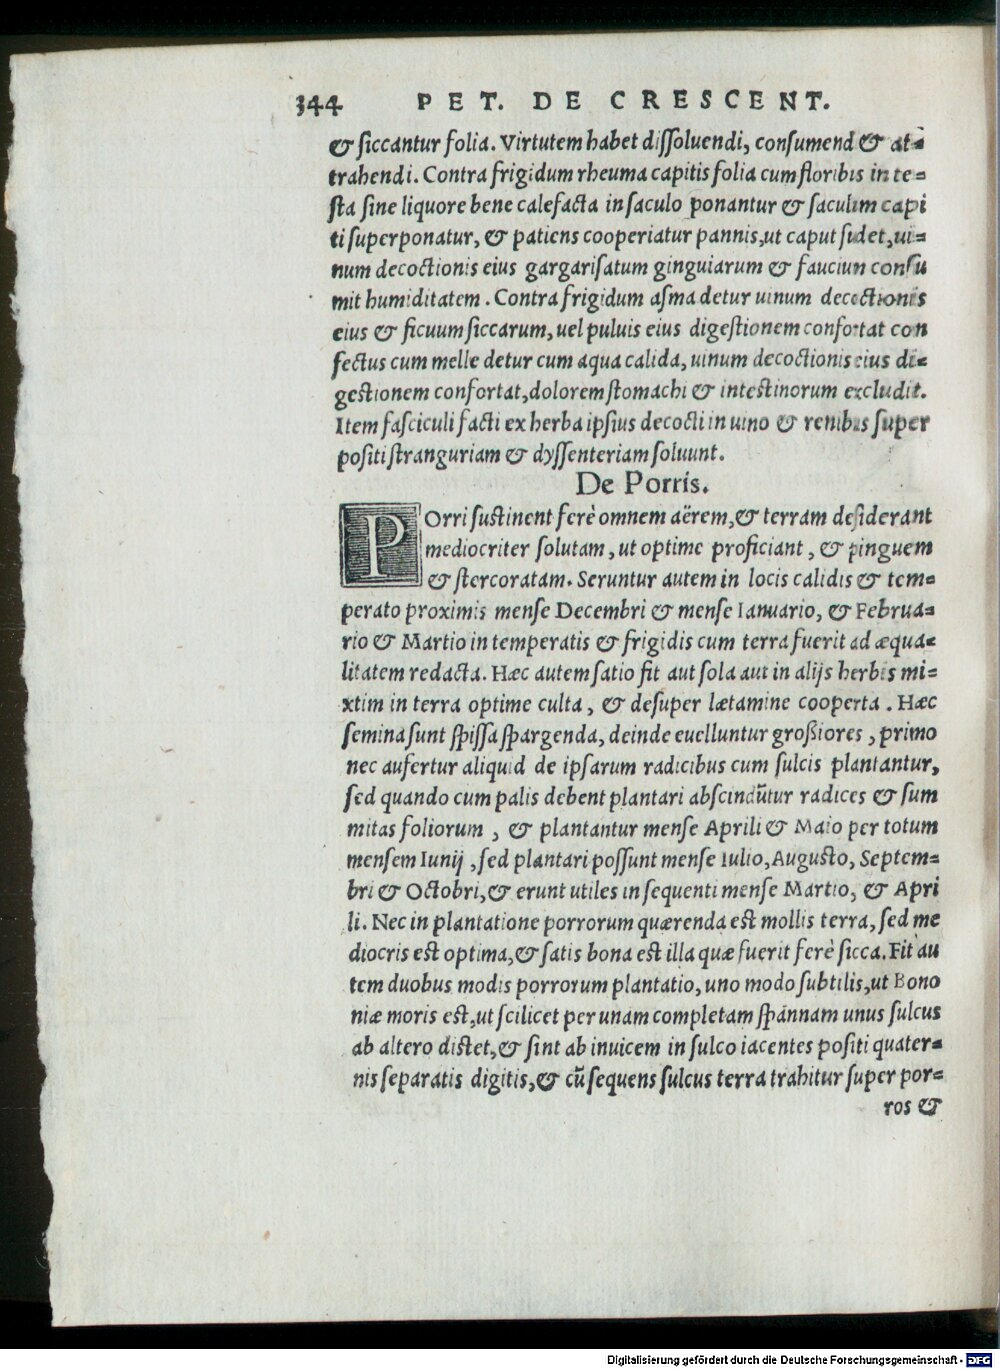 344 PET. DE CRESCENT.
& siccantur folia. Virtutem habet dissoluendi, consumend & at-
trahendi. Contra frigidum rheuma capitis folia cum floribus in te-
sta sine liquore bene calefacta in saculo ponantur & saculum capi
ti superponatur, & patiens cooperiatur pannis, ut caput sudet, ui-
num decoctionis eius gargarisatum ginguiarum & faucium consu
mit humiditatem. Contra frigidum asma detur uinum decoctionis
eius & ficuum siccarum, uel puluis eius digestionem confortat con
fectus cum melle detur cum aqua calida, uinum decoctionis eius di-
gestionem confortat, dolorem stomachi & intestinorum excludit.
Item fasciculi facti ex herba ipsius decocti in uino & renibus super
positi stranguriam & dyssenteriam soluunt.
De Porris.
POrri sustinent ferè omnem aërem, & terram desiderant
mediocriter solutam, ut optime proficiant, & pinguem
& stercoratam. Seruntur autem in locis calidis & tem-
perato proximis mense Decembri & mense Ianuario, & Februa-
rio & Martio in temperatis & frigidis cum terra fuerit ad æqua-
litatem redacta. Hæc autem satio fit aut sola aut in alijs herbis mi-
xtim in terra optime culta, & desuper lætamine cooperta. Hæc
semina sunt spissa spargenda, deinde euelluntur großiores, primo
nec aufertur aliquid de ipsarum radicibus cum sulcis plantantur,
sed quando cum palis debent plantari abscindūtur radices & sum
mitas foliorum, & plantantur mense Aprili & Maio per totum
mensem Iunij, sed plantari possunt mense Iulio, Augusto, Septem-
bri & Octobri, & erunt utiles in sequenti mense Martio, & Apri
li. Nec in plantatione porrorum quærenda est mollis terra, sed me
diocris est optima, & satis bona est illa quæ fuerit ferè sicca. Fit au
tem duobus modis porrorum plantatio, uno modo subtilis, ut Bono
niæ moris est, ut scilicet per unam completam spannam unus sulcus
ab altero distet, & sint ab inuicem in sulco iacentes positi quater-
nis separatis digitis, & cū sequens sulcus terra trahitur super por-
ros &
Digitalisierung gefördert durch die Deutsche Forschungsgemeinschaft - DFG